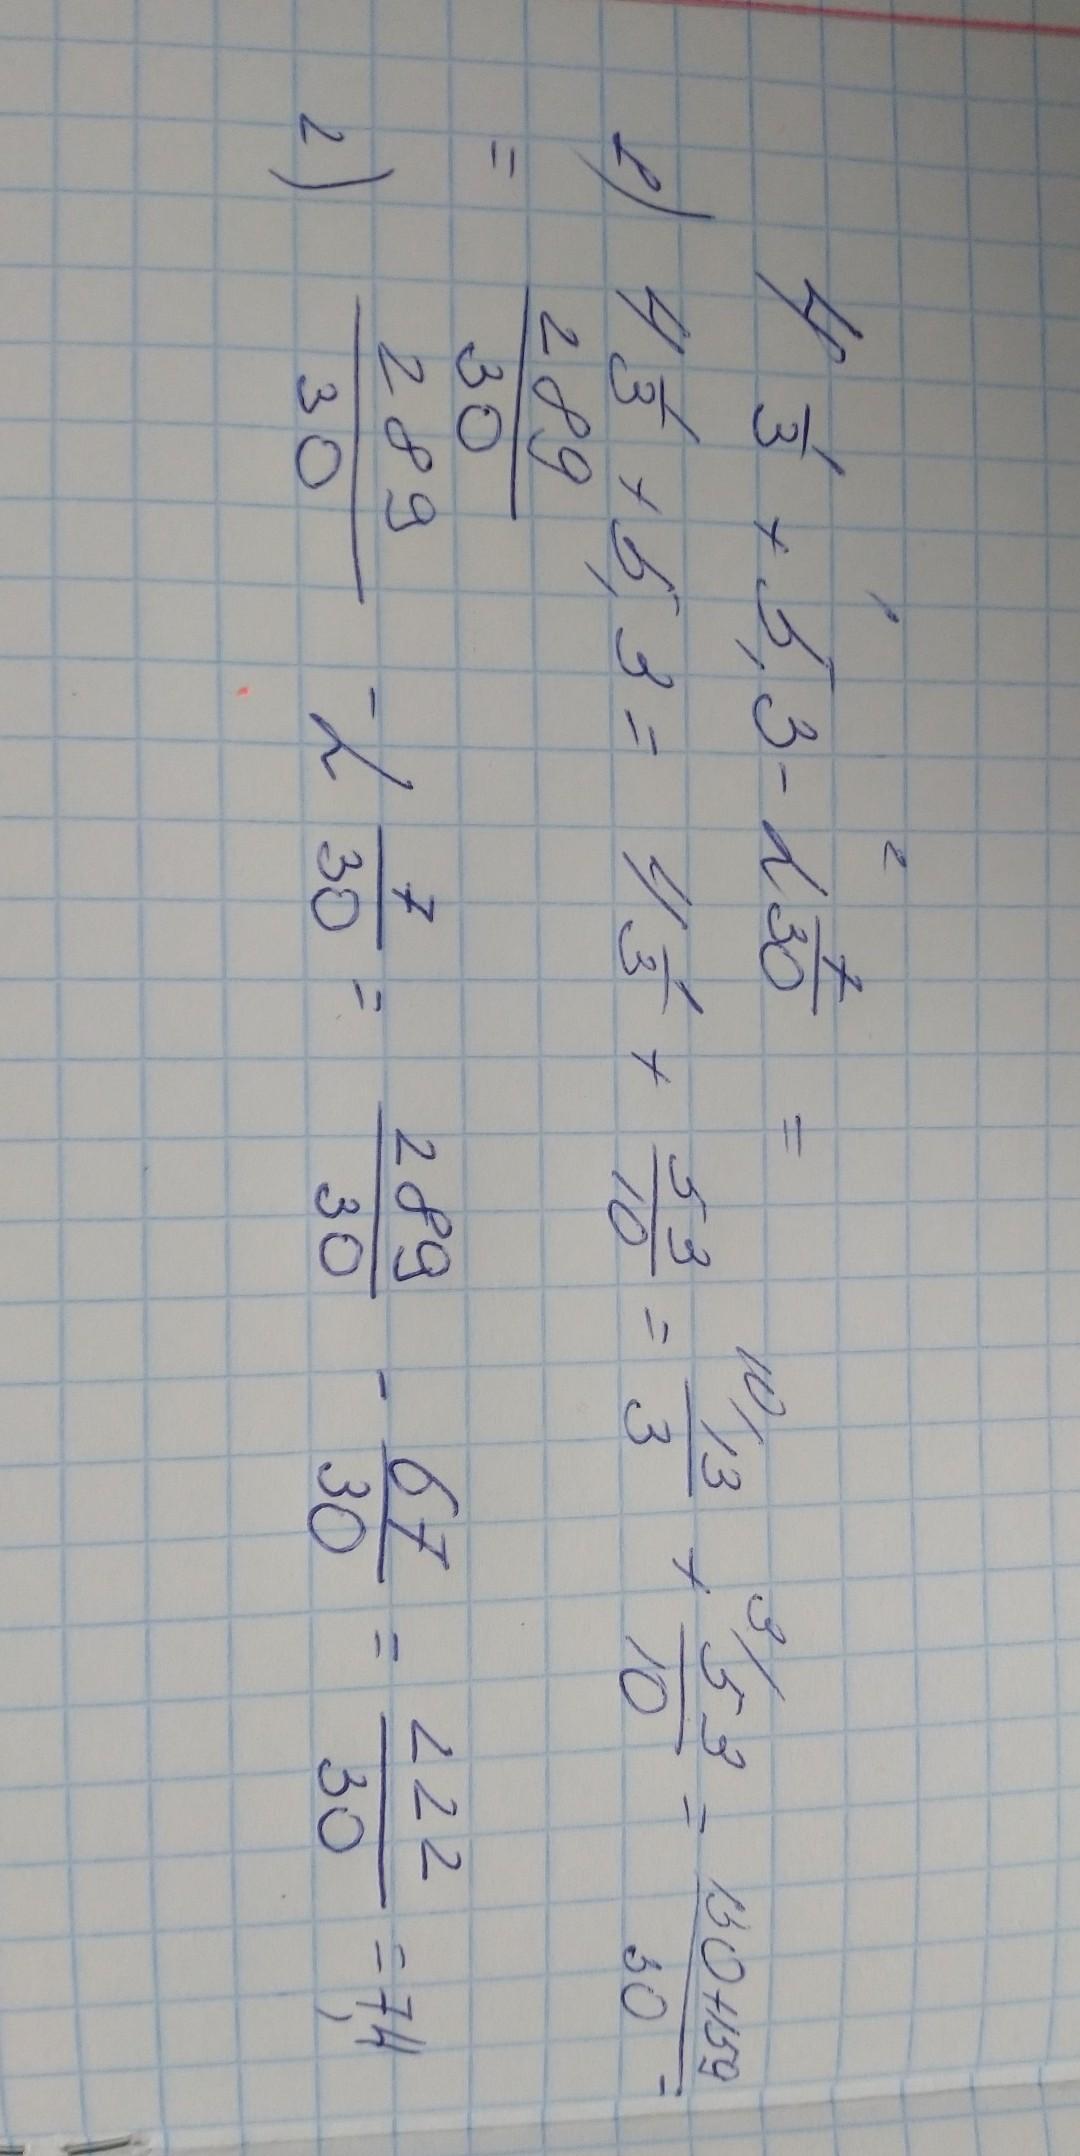 1 2
4 1/3 + 5,3 - 2 7/30 =
1) 4 1/3 + 5,3 = 4 1/3 + 53/10 = 10/ 13/3 + 3/ 53/10 = 130+159/30 =
= 289/30
2) 289/30 - 2 7/30 = 289/30 - 67/30 = 222/30 = 7,4